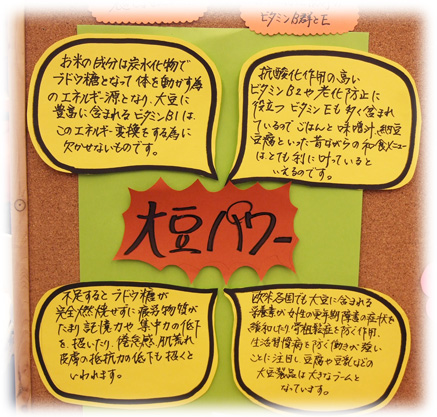 ビタミンB群とE
お米の成分は炭水化物で
ブドウ糖となって体を動かす為
のエネルギー源となり、大豆に
豊富に含まれるビタミンB1は、
このエネルギー変換をする為に
欠かせないものです。
抗酸化作用の高い
ビタミンB2や老化防止に
役立つビタミンEも多く含まれ
ているので ごはんと味噌汁、納豆
豆腐といった昔ながらの和食メニュー
は、とても利に叶っていると
いえるのです。
大豆パワー
不足するとブドウ糖が
完全燃焼せずに疲労物質が
たまり記憶力や集中力の低下
を招いたり、倦怠感、肌荒れ
皮膚の抵抗力の低下も招くと
いわれます。
欧米各国でも大豆に含まれる
栄養素が女性の更年期障害の症状を
緩和したり骨粗鬆症を防ぐ作用、
生活習慣病を防ぐ働きが強い
ことに注目し豆腐や豆乳などの
大豆製品は大きなブームと
なっています。